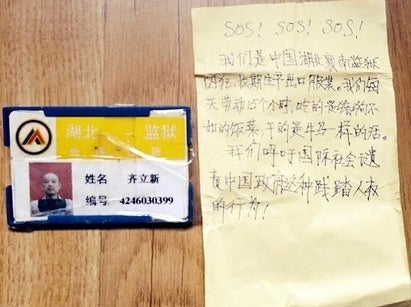 湖北 监狱
处 管
姓名 齐立新
编号 4246030399
SOS! SOS! SOS!
我们是中国湖北襄南监狱
囚犯,长期生产出口服装。我们每
天劳动15个小时,吃的是猪狗不
如的饭菜,干的是牛马一样的活。
我们呼吁国际社会谴
责中国政府这种践踏人权
的行为!